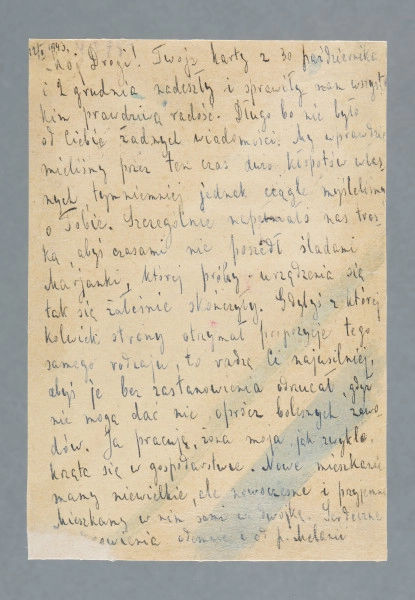 1943.
Mój Drogi! Twoje karty z 30 października
i 2 grudnia nadeszły i sprawiły nam wszyst-
kim prawdziwą radość. Długo bo nie było
od Ciebie żadnych wiadomości. My wprawdzie
mieliśmy przez ten czas dużo kłopotów włas-
nych, tymniemniej jednak ciągle myśleliśmy
o Tobie. Szczególnie napełniało nas tros-
ką abyś czasami nie poszedł śladami
Marjanki, której próby urządzenia się
tak się żałośnie skończyły. Gdybyś z której
kolwiek strony otrzymał propozycje tego
samego rodzaju, to radzę Ci najusilniej,
abyś je bez zastanowienia odrzucał, gdyż
nie mogą dać nic oprócz bolesnych zawo-
dów. Ja pracuję, żona moja, jak zwykle,
krząta się w gospodarstwie. Nowe mieszkanie
mamy niewielkie, ale nowoczesne i przyjemne
Mieszkamy w nim sami we dwójkę. Serdeczne
odemnie i od p. Melanii